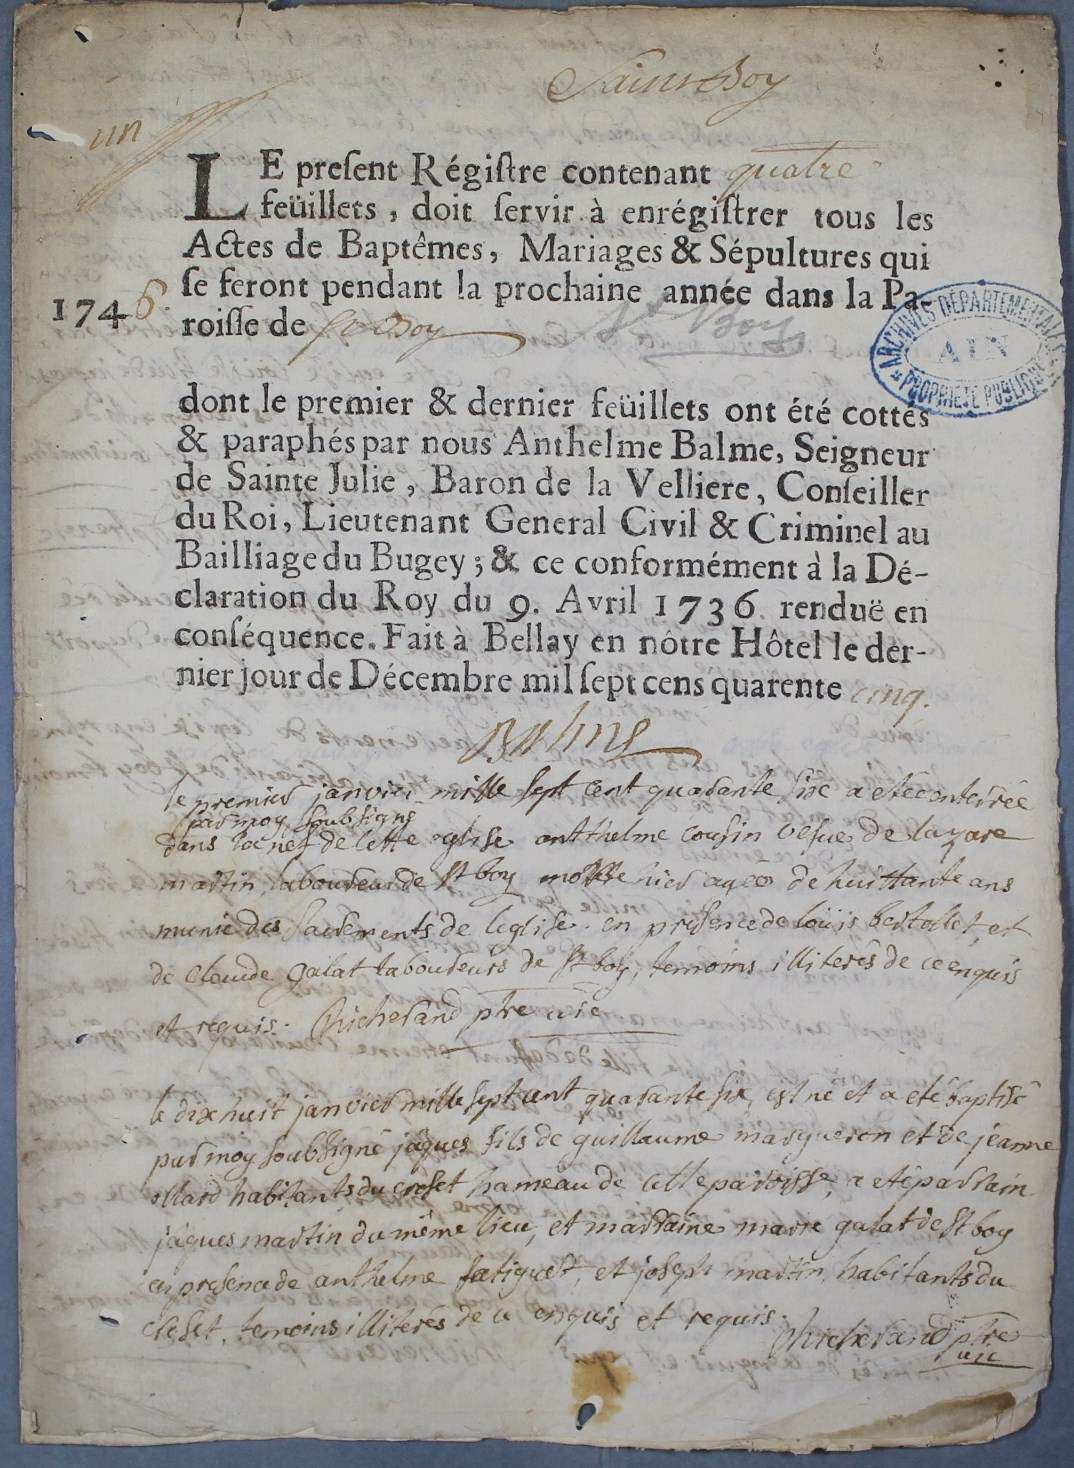 Saint Boy
un
LE present Régistre contenant quatre
feüillets, doit servir à enrégistrer tous les
Actes de Baptêmes, Mariages & Sépultures qui
se feront pendant la prochaine année dans la Pa-
1746.
roisse de St Boy
St Boy
ARCHIVES DÉPARTEMENTALES
AIN
PROPRIÉTÉ PUBLIQUE
dont le premier & dernier feüillets ont été cottés
& paraphés par nous Anthelme Balme, Seigneur
de Sainte Julie, Baron de la Velliere, Conseiller
du Roi, Lieutenant General Civil & Criminel au
Bailliage du Bugey; & ce conformément à la Dé-
claration du Roy du 9. Avril 1736. renduë en
conséquence. Fait à Bellay en nôtre Hôtel le der-
nier jour de Décembre mil sept cens quarente cinq.
Balme
le premier janvier mille sept cent quarante six a eté enterrée
par moy soubsigné
dans la nef de cette eglise antthelme cousin vefue de lazare
martin laboureur de st boy morte hier agée de huittante ans
munie des sacrements de leglise. en presence de loüis bertollet, et
de claude galat laboureurs de st boy, temoins illiterés de ce enquis
et requis. Richerand ptre uic
le dix huit janvier mille sept cent quarante six, est né et a eté baptisé
par moy soubsigné jâques fils de guillaume margueron et de jeanne
ollard habitants du croset hameau de cette paroisse, a eté parrain
jâques martin du même lieu, et marraine marie galat de st boy
en presence de anthelme fatiguet, et joseph martin habitants du
croset temoins illiterés de ce enquis et requis.
Richerand ptre
uic